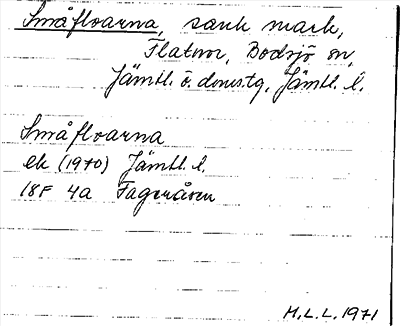 Småfloarna, sank mark,
Flatnor, Bodsjö sn,
Jämtl. ö. doms.tg, Jämtl. l.
Småfloarna
ek (1970) Jämtl. l.
18F 4a Fageråsen
M.L.L. 1971